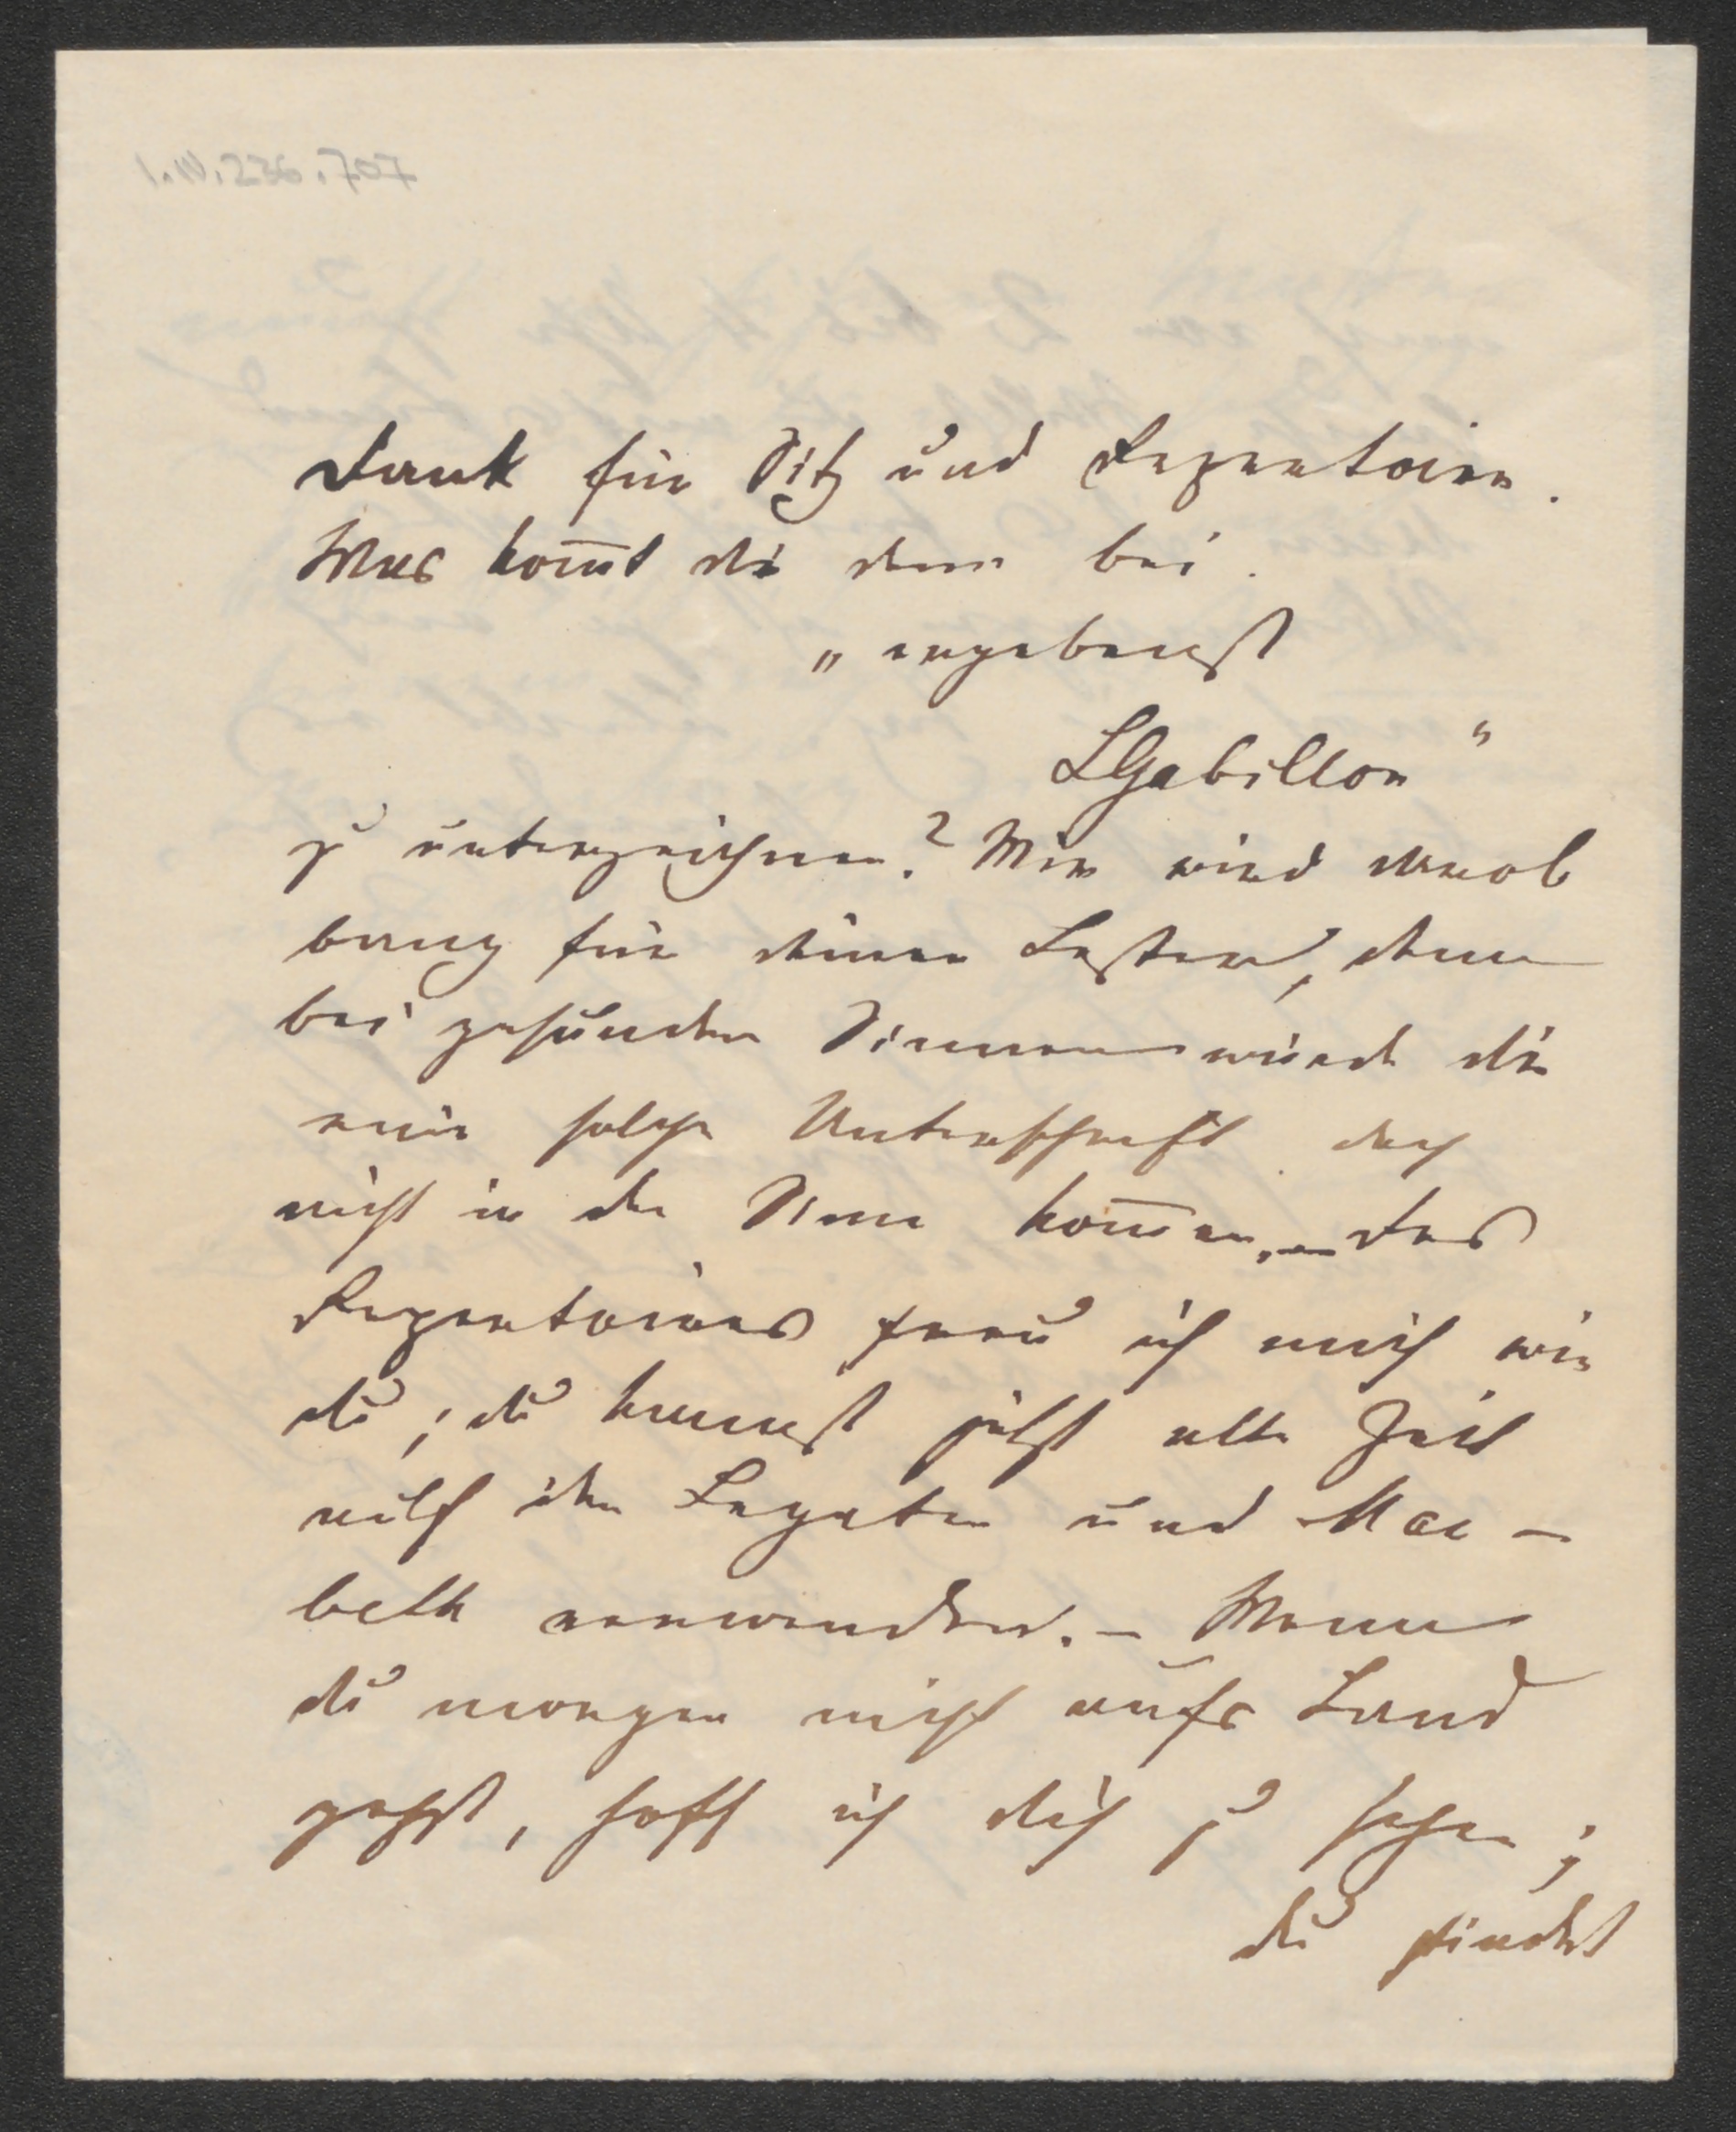 Dank für Sitz und Repertoire.
Was kom̅t dir denn bei
„ergebenst
LGabillon“
zu unterzeichnen? Mir wird darob
bang für deinen Lester, denn
bei gesunden Sinnen würde dir
eine solche Unterschrift doch
nicht in den Sinn kom̅en. – Des
Repertoires freu ich mich wie
du; du kannst jetzt alle Zeit
auf den Legaten und Mac-
beth verwenden. – Wenn
du morgen nicht aufs Land
gehst, hoff ich dich zu sehen;
du findest